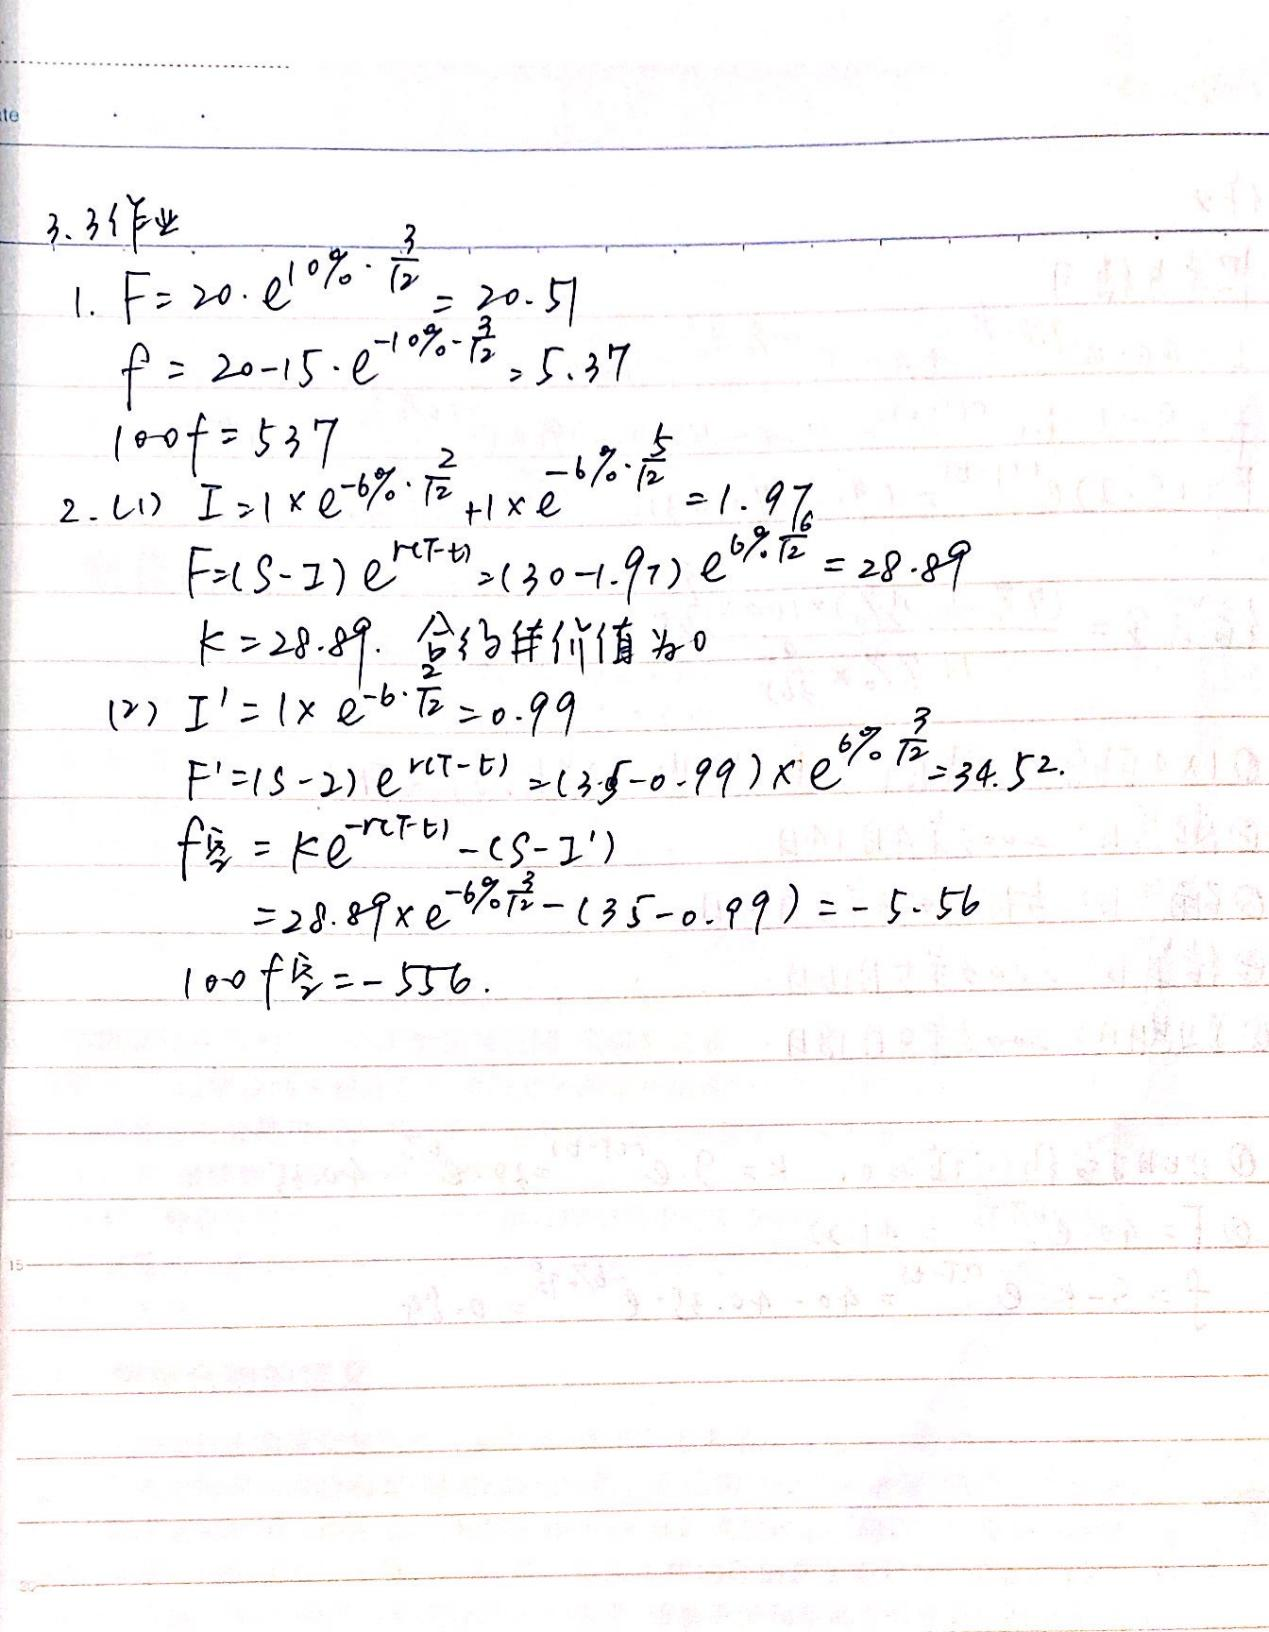 te
3.3作业
1. F = 20·e^{10%·3/12} = 20.51
f = 20-15·e^{-10%·3/12} = 5.37
100f = 537
2.(1) I = 1×e^{-6%·2/12}+1×e^{-6%·5/12} = 1.97
F=(S-I)e^{r(T-t)}=(30-1.97)e^{6%·6/12} = 28.89
K = 28.89. 合约价值为0
(2) I' = 1×e^{-6·2/12} = 0.99
F'=(S-2)e^{r(T-t)} =(35-0.99)×e^{6%·3/12}=34.52.
f空 = Ke^{-r(T-t)} -(S-I')
=28.89×e^{-6%·3/12}-(35-0.99) = -5.56
100f空 = -556.
15
20